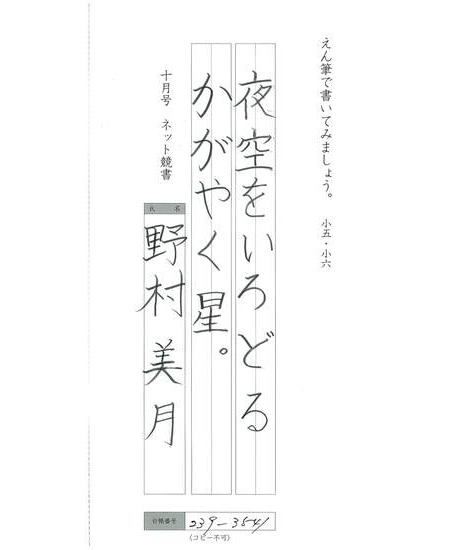 えん筆で書いてみましょう。 小五・小六
夜空をいろどる
かがやく星。
十月号 ネット競書
氏名
野村美月
台帳番号 239-3541
(コピー不可)